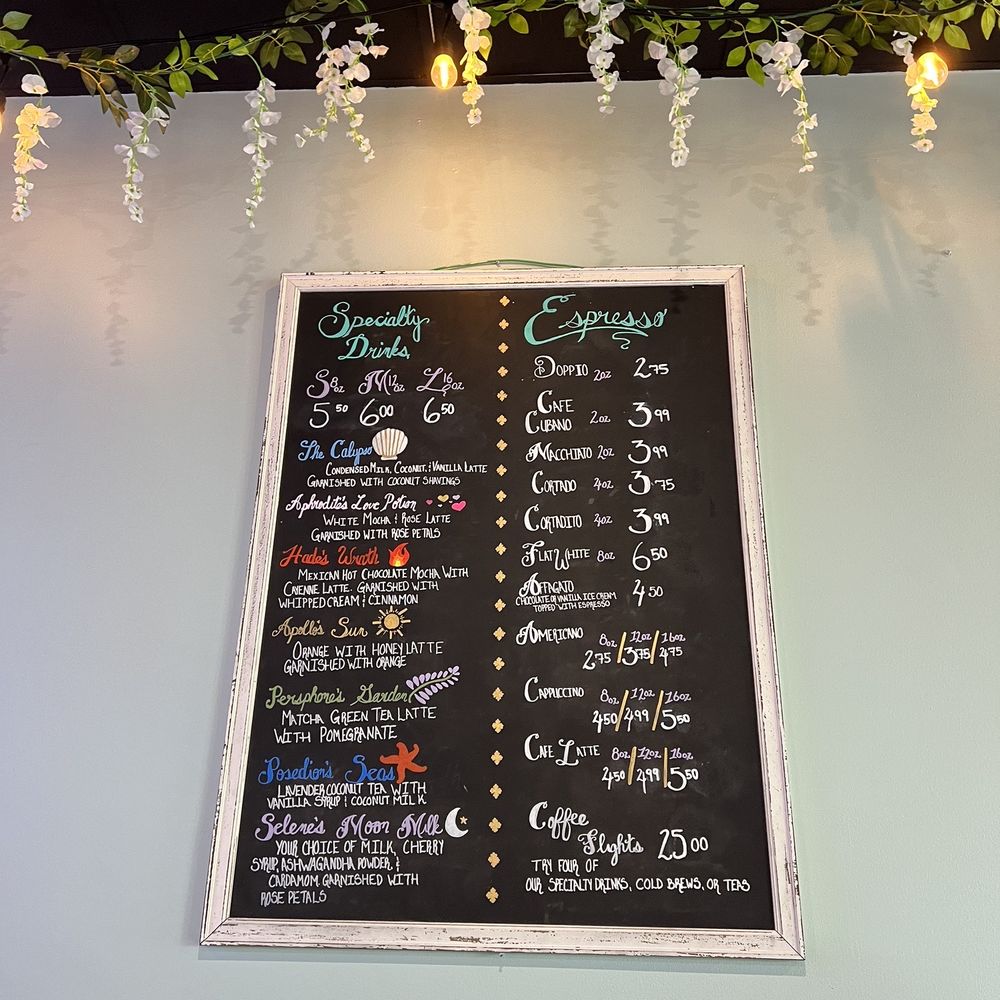 Specialty
Drinks
S 8oz M 12oz L 16oz
5 50 6 00 6 50
The Calypso
Condensed Milk, Coconut, & Vanilla Latte
Garnished with coconut shavings
Aphrodite's Love Potion
White Mocha & Rose Latte
Garnished with rose petals
Hade's Wrath
Mexican Hot Chocolate Mocha with
Cayenne Latte. Garnished with
whipped cream & cinnamon
Apollo's Sun
Orange with Honey Latte
Garnished with orange
Persphone's Garden
Matcha Green Tea Latte
with Pomegranate
Posedion's Seas
Lavender coconut tea with
vanilla syrup & coconut milk
Selene's Moon Milk
your choice of milk, cherry
syrup, ashwagandha powder, &
cardamom. garnished with
rose petals
Espresso
Doppio 2oz 2.75
Cafe
Cubano 2oz 3 99
Macchiato 2oz 3 99
Cortado 4oz 3.75
Cortadito 4oz 3 99
Flat White 8oz 6 50
Affagato 4 50
chocolate or vanilla ice cream
topped with espresso
Americano 8oz/12oz/16oz
2 75/3 75/4 75
Cappuccino 8oz/12oz/16oz
4 50/4 99/5 50
Cafe Latte 8oz/12oz/16oz
4 50/4 99/5 50
Coffee
Flights 25 00
try four of
our specialty drinks, cold brews, or teas